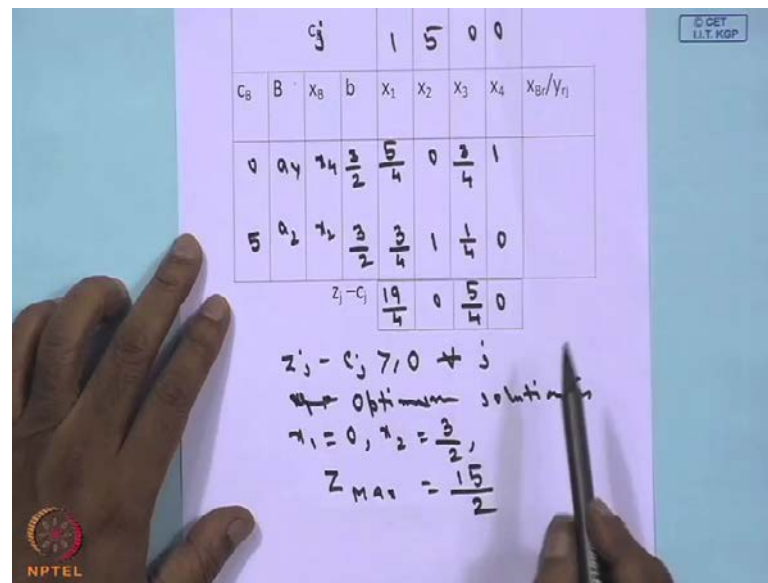 © CET
I.I.T. KGP
cj 1 5 0 0
CB B XB b X1 X2 X3 X4 XBr/yrj
0 a4 x4 3/2 5/4 0 3/4 1
5 a2 x2 3/2 3/4 1 1/4 0
zj-cj 19/4 0 5/4 0
zj - cj ≥ 0 ∀ j
Optimum solution is
x1 = 0, x2 = 3/2,
Z Max = 15/2
NPTEL